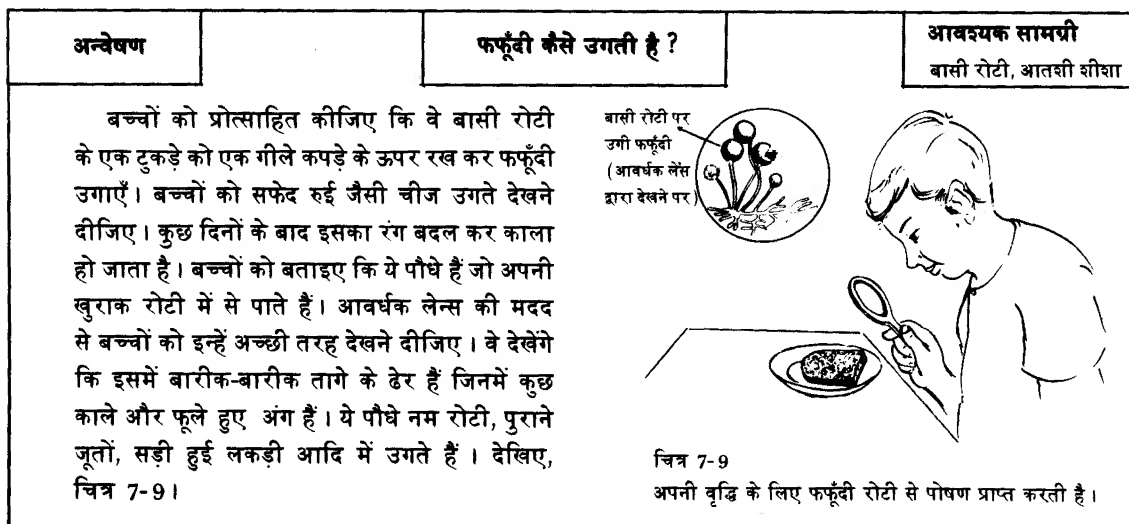 अन्वेषण
फफूँदी कैसे उगती है ?
आवश्यक सामग्री
बासी रोटी, आतशी शीशा
बच्चों को प्रोत्साहित कीजिए कि वे बासी रोटी
के एक टुकड़े को एक गीले कपड़े के ऊपर रख कर फफूँदी
उगाएँ। बच्चों को सफेद रुई जैसी चीज उगते देखने
दीजिए। कुछ दिनों के बाद इसका रंग बदल कर काला
हो जाता है। बच्चों को बताइए कि ये पौधे हैं जो अपनी
खुराक रोटी में से पाते हैं। आवर्धक लेन्स की मदद
से बच्चों को इन्हें अच्छी तरह देखने दीजिए। वे देखेंगे
कि इसमें बारीक-बारीक तागे के ढेर हैं जिनमें कुछ
काले और फूले हुए अंग हैं। ये पौधे नम रोटी, पुराने
जूतों, सड़ी हुई लकड़ी आदि में उगते हैं । देखिए,
चित्र 7-9।
बासी रोटी पर
उगी फफूँदी
(आवर्धक लेंस
द्वारा देखने पर)
चित्र 7-9
अपनी वृद्धि के लिए फफूँदी रोटी से पोषण प्राप्त करती है।